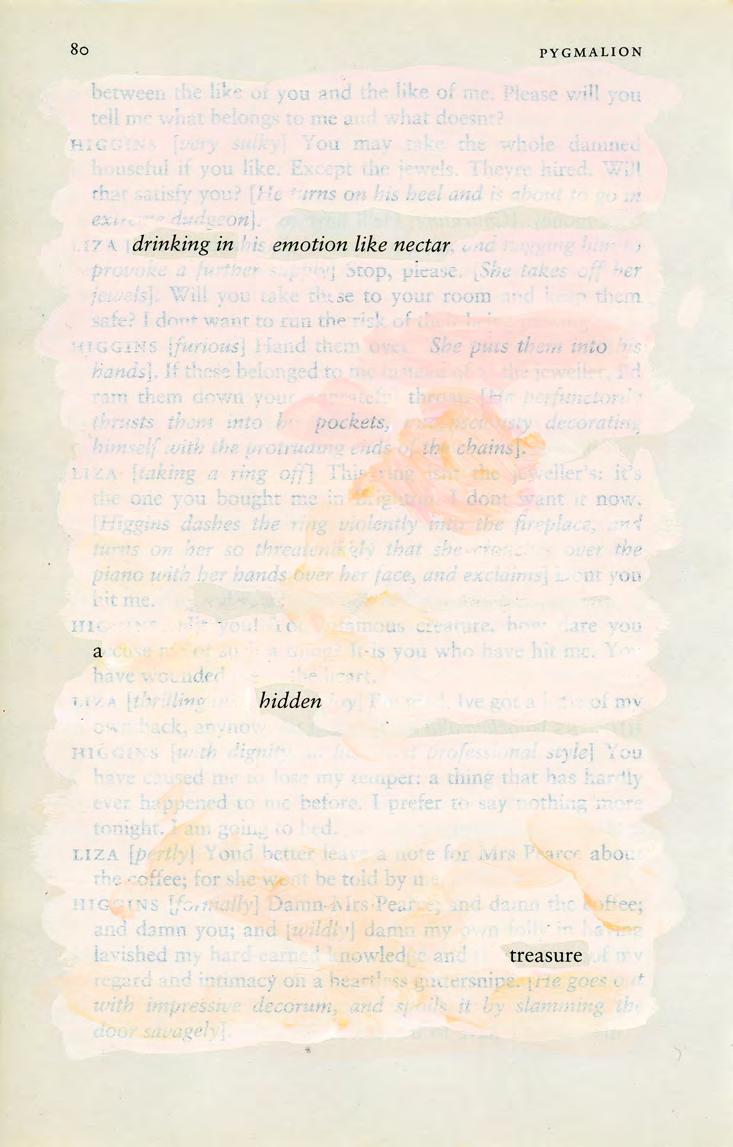 80 PYGMALION
between the like of you and the like of me. Please will you
tell me what belongs to me and what doesnt?
HIGGINS [very sulky] You may take the whole damned
houseful if you like. Except the jewels. Theyre hired. Will
that satisfy you? [He turns on his heel and is about to go in
extreme dudgeon].
LIZA [drinking in his emotion like nectar, and nagging him to
provoke a further supply] Stop, please. [She takes off her
jewels]. Will you take these to your room and keep them
safe? I dont want to run the risk of their being missing.
HIGGINS [furious] Hand them over. She puts them into his
hands]. If these belonged to me instead of to the jeweller, I'd
ram them down your ungrateful throat. [He perfunctorily
thrusts them into his pockets, unconsciously decorating
himself with the protruding ends of the chains].
LIZA [taking a ring off] This ring isnt the jeweller's: it's
the one you bought me in Brighton. I dont want it now.
[Higgins dashes the ring violently into the fireplace, and
turns on her so threateningly that she crouches over the
piano with her hands over her face, and exclaims] Dont you
hit me.
HIGGINS. Hit you! You infamous creature, how dare you
accuse me of such a thing? It is you who have hit me. You
have wounded me to the heart.
LIZA [thrilling with hidden joy] I'm glad. Ive got a little of my
own back, anyhow.
HIGGINS [with dignity, in his finest professional style] You
have caused me to lose my temper: a thing that has hardly
ever happened to me before. I prefer to say nothing more
tonight. I am going to bed.
LIZA [pertly] Youd better leave a note for Mrs Pearce about
the coffee; for she wont be told by me.
HIGGINS [formally] Damn Mrs Pearce; and damn the coffee;
and damn you; and [wildly] damn my own folly in having
lavished my hard-earned knowledge and the treasure of my
regard and intimacy on a heartless guttersnipe. [He goes out
with impressive decorum, and spoils it by slamming the
door savagely].